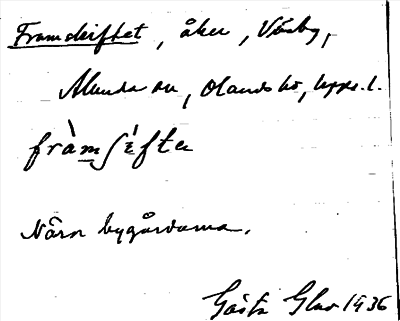 Framskiftet, åker, Väsby,
Alunda sn, Olands hd, Uppl. l.
fràmʃi̵fte
Närn bygårdarna.
Gösta Glas 1936